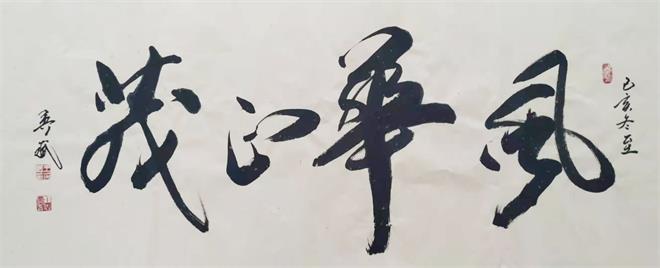 己亥冬至
風華正茂